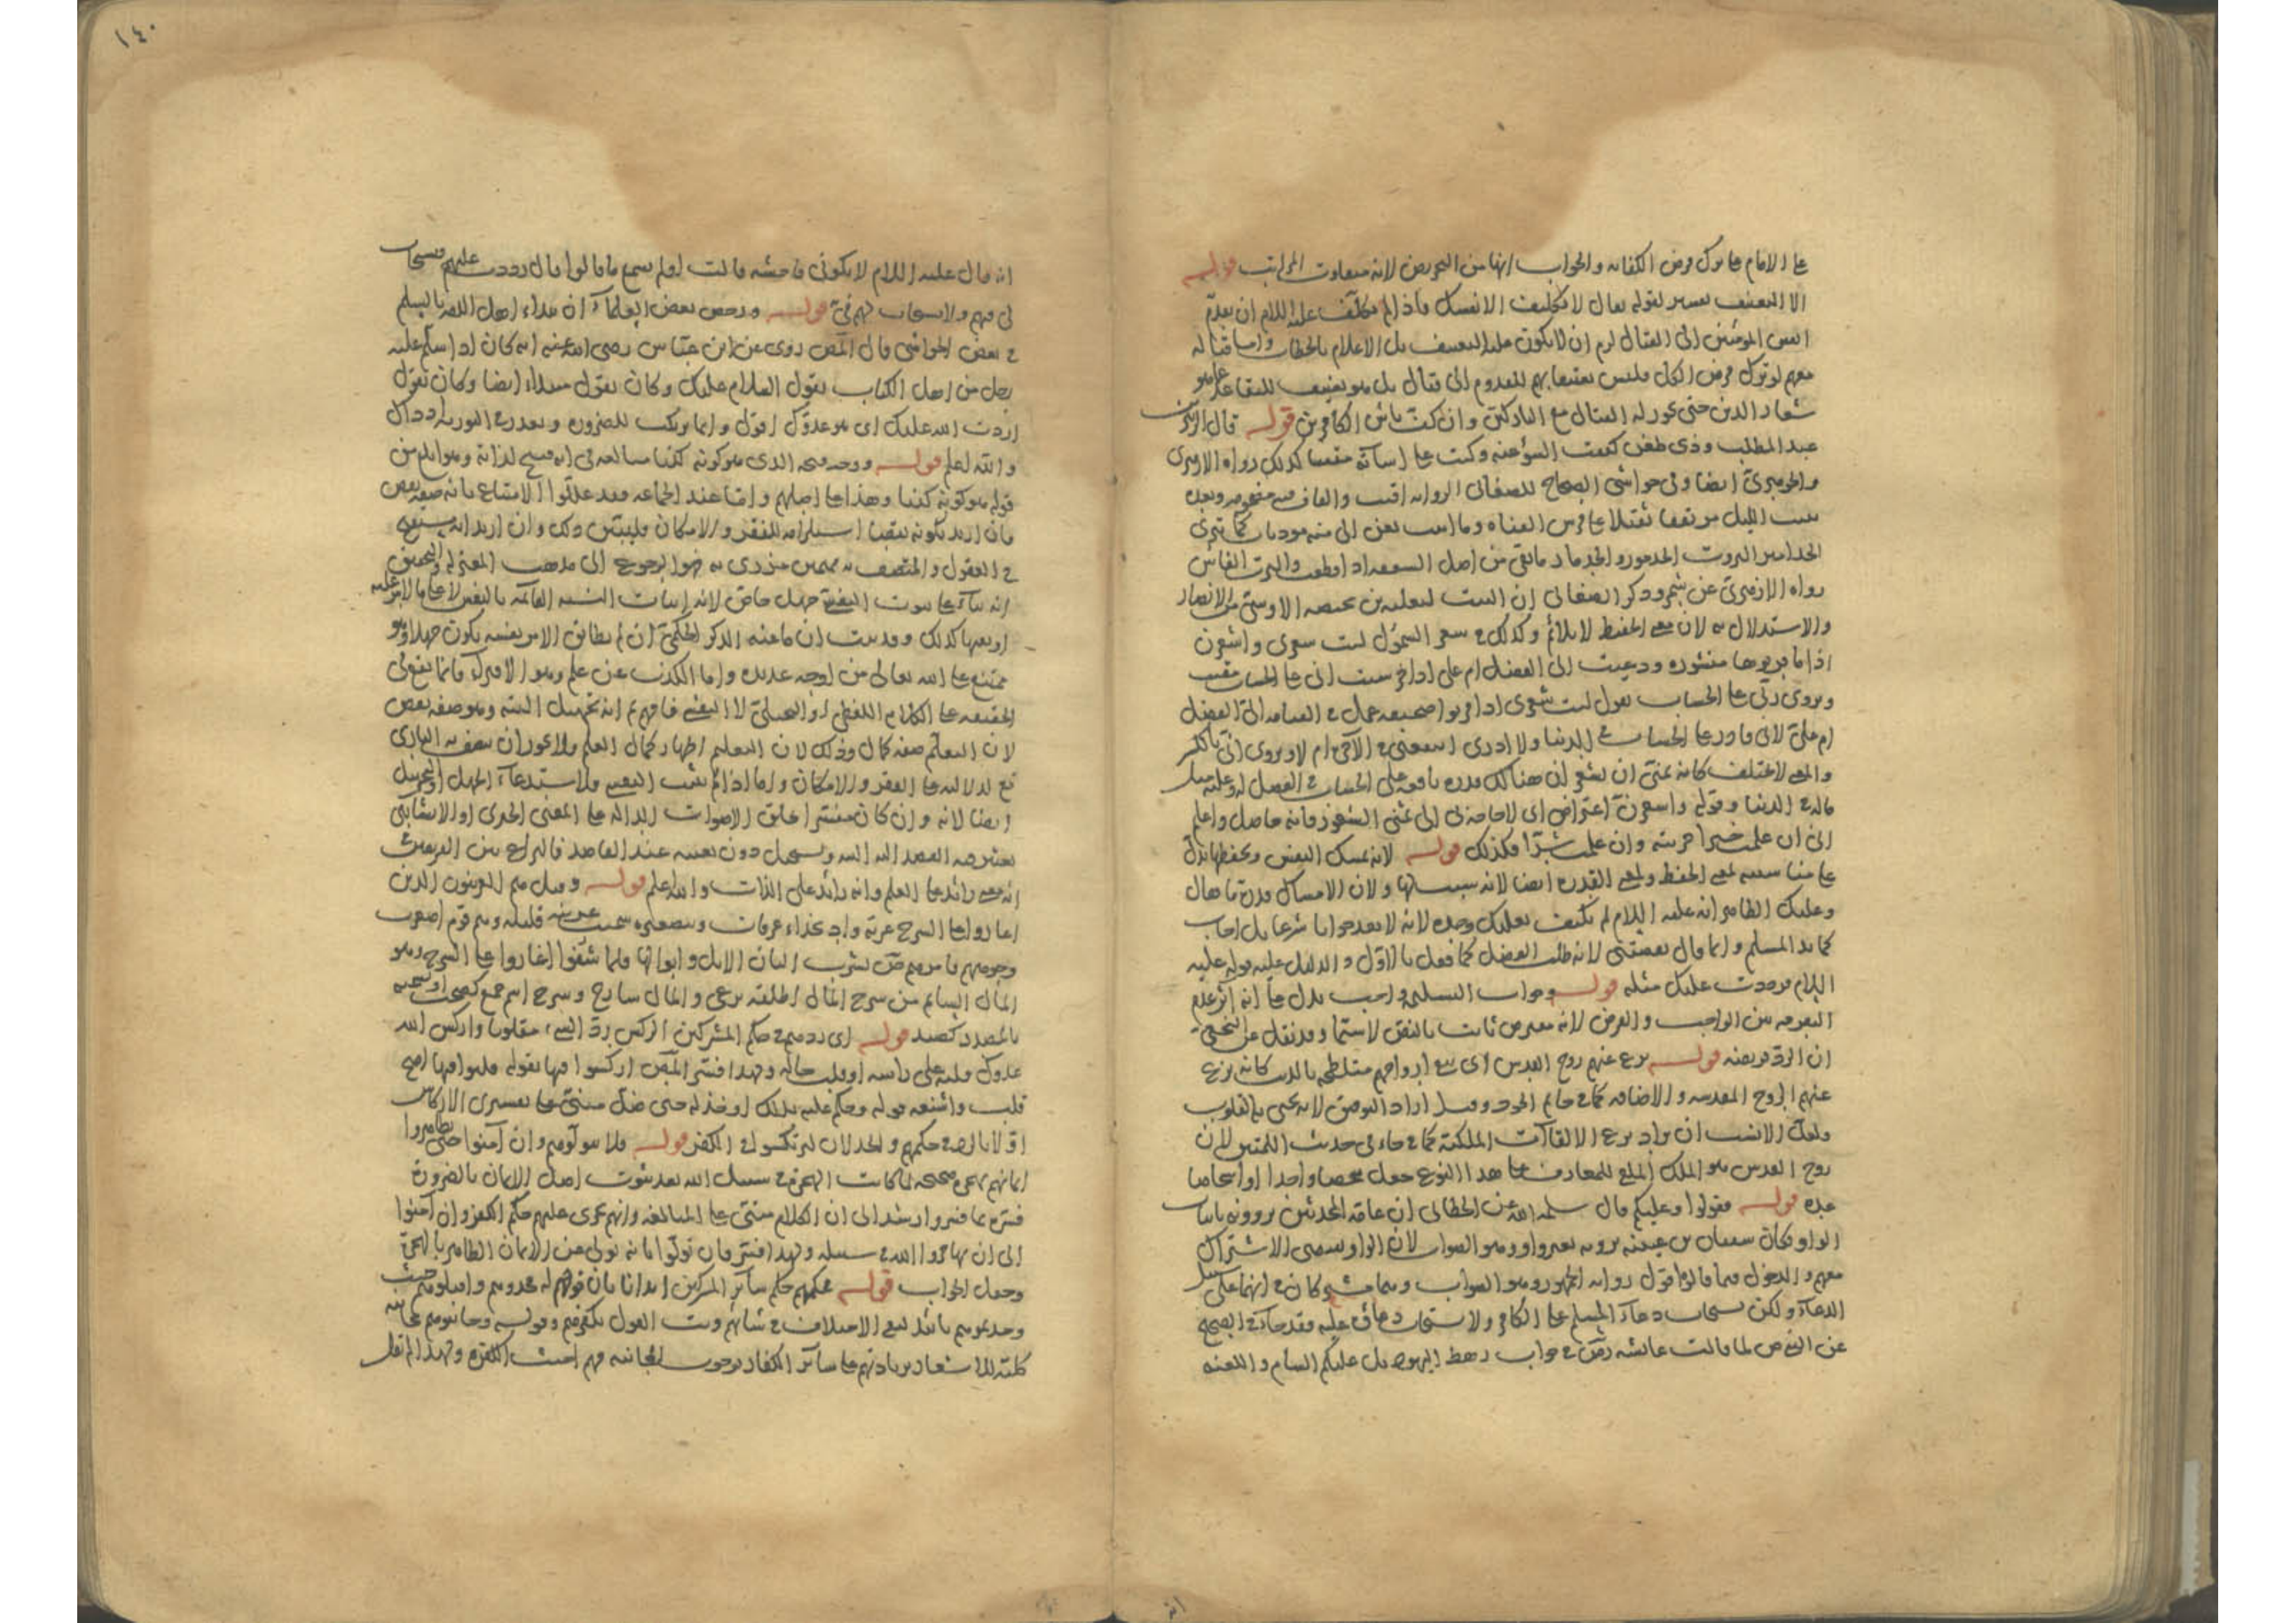 على الامام على ترك فرض الكفاية والجواب انها من التحريض لانه متفاوت المراتب قوله
الا التعنيف تفسير لقوله تعالى لا تكلف الا نفسك فاذا لم يكلف عليه السلام ان يقدم
انفس المؤمنين الى القتال لزم ان لا يكون عليه التعنيف بل الاعلام بالخطاب واما قتاله
معهم لو ترك فرض الكل فليس تعنيفا بهم للقدوم الى قتال بل هو تعنيف للتقاعد عما هو
شعار الدين حتى يجوز له القتال مع التاركين وان كف بأس الكافرين قوله قال الزبير بن
عبد المطلب وذي ضغن كففت السوء عنه وكنت على اساته مقيتا كذلك رواه الازهري
والجوهري ايضا وفي حواشي الصحاح للصغاني الرواية اقيت والقافية مضمومة وبعده
يبيت الليل مرتفقا ثقيلا على فرش القناة وما ابيت تعن الي منه مؤذيات كما تبري
الجذامير البروت الجذمور والجذمار ما بقي من اصل السعفة اذا قطعت والبرت الفأس
رواه الازهري عن شمر وذكر الصغاني ان البيت لثعلبة بن محيصة الاوسي من الانصار
والاستدلال به لان معنى الحفيظ لا يلائم وكذلك في شعر السموءل ليت شعري واشعرن
اذا ما قربوها منشورة ودعيت الي الفضل ام علي اذا حوسبت اني على الحساب مقيت
ويروى ربي على الحساب يقول ليت شعري اذا قربوا صحيفة عمل في القيامة الي الفضل
ام علي لاني قادر على الحساب في الدنيا ولا ادري اينفعني في الآخرة ام لا ويروى اني بالكسر
والمعنى لا يختلف كانه تمنى ان يشعر ان هنالك قدرة نافعة على الحساب في الفضل له وعليه مثل
ماله في الدنيا وقوله واشعرن اعتراض اي لا حاجة لي الى تمني الشعور فانه حاصل واعلم
اني ان علمت خيرا جزيته وان علمت شرا فكذلك قوله لانه يمسك النفس ويحفظها يدل
على مناسبته لمعنى الحفيظ ولمعنى القدرة ايضا لانه سببها ولان الامساك قدرة ما قال
وعليك الظاهر انه عليه السلام لم يكتف بعليك وحده لانه لا يعد جوابا شرعا بل اجاب
كما بدا المسلم وانما قال نقصتني لانه طلب الفضل كما فعل بالاول والدليل عليه قوله عليه
السلام فرددت عليك مثله قوله وجواب التسليم واجب يدل على انه آثر عدم
التفرقة بين الواجب والفرض لانه مفترض ثابت بالنص لا سيما وقد نقل عن النخعي
ان الرد فريضة قوله نزع عنهم روح القدس اي تبقى ارواحهم متلطخة بالدنس كانه نزع
عنهم الروح المقدسة والاضافة كما في حاتم الجود وقيل اراد التوفيق لانه يحيى به القلوب
ولعل الانسب ان يراد نزع الالقاآت الملكية كما جاء في حديث اللمتين لان
روح القدس هو الملك الملقي للمعارف على هذا النوع جعل شخصا واحدا او اشخاصا
عدة قوله فقولوا وعليكم قال سلمه الله عن الخطابي ان عامة المحدثين يروونه باثبات
الواو وكان سفيان بن عيينة يرويه بغير واو وهو الصواب لان الواو يقتضي الاشتراك
معهم والدخول فيما قالوا اقول رواية الجمهور هو الصواب وبها
الدعاء ولكن يستجاب دعاء المسلم على الكافر ولا يستجاب دعاؤه عليه فقد جاء في الصحيح
عن النبي ص لما قالت عائشة رض في جواب رهط اليهود بل عليكم السام واللعنة
١٤٠
انه قال عليه السلام لا تكوني فاحشة قالت اولم تسمع ما قالوا قال رددت عليهم فيستجاب
لي فيهم ولا يستجاب لهم في قوله ورخص بعض العلماء ان يبدا اهل الذمة بالسلم
في بعض الحواشي قال المص روى عن ابن عباس رضي الله عنه انه كان اذا سلم عليه
رجل من اهل الكتاب يقول السلام عليك وكان يقول مبتداء ايضا وكان يقول
اردت الله عليك اي هو عدوك اقول وانما يرتكب للضرورة وتعذر في التورية اذ ذاك
والله اعلم قوله ووجه قبحه الذي هو كونه كذبا مبالغة في انه قبيح لذاته وهو ابلغ من
قوله هو كونه كذبا وهذا على اصلهم واما عند الجماعة فقد عللوا الامتناع بانه صفة نقص
فان اريد بكونه نقصا استلزامه للفقر والامكان فليبين ذلك وان اريد انه يستقبح
في العقول والمتصف به ممتهن مزدرى به فهو الرجوع الى مذهب المعتزلة والتحقيق
انه بناء على ثبوت النفسي جهل خاص لانه اثبات النسبة القائمة بالنفس لا على ما الامر عليه
او نفيها كذلك وقد ثبت ان ما عنه الذكر الحكمي ان لم يطابق الامر نفسه يكون جهلا وهو
ممتنع على الله تعالى من اوجه عديدة واما الكذب عن علم وهو الافتراء فانما يقع في
الحقيقة على الكلام اللفظي او التخيلي لا النفسي فافهم ثم انه تجهيل البتة وهو صفة نقص
لان التعلم صفة كمال وذلك لان التعليم اظهار كمال العلم ولا يجوز ان يتصف به الباري
تع لدلالته على الفقر والامكان واما اذا لم يثبت النفسي فلاستدعاء الجهل او التجهيل
ايضا لانه وان كان مفسرا بخلق الاصوات الدالة على المعنى الخبري او الانشائي
يعتبر فيه القصد اليه البتة ويستحيل دون تعينه عند القاصد فالنزاع بين الفريقين
انه معنى زائد على العلم وانه زائد على الذات والله اعلم قوله وقيل هم العرنيون الذين
اغاروا على السرح عرنة واد بحذاء عرفات وبتصغيره سميت عرينة قبيلة وهم قوم اصفرت
وجوههم فامرهم ص بشرب البان الابل وابوالها فلما شفوا اغاروا على السرح وهو
المال السايم من سرح المال اطلقه يرعى والمال سارح وسرح اسم جمع كصحب او تسمية
بالمصدر كصيد قوله اي ردهم في حكم المشركين الركس رد الشيء مقلوبا واركس الله
عدوك قلبه على راسه او قلب حاله ولهذا فسر المص اركسوا فيها بقوله قلبوا فيها اقبح
قلب واشنعه قوله وحكم عليه بذلك او خذله حتى ضل مبني على تفسيري الاركاس
اولا بالرد في حكمهم والخذلان ليرتكسوا في الكفر قوله فلا تتولوهم وان آمنوا حتى يظاهروا
ايمانهم بهجرة صحيحة لما كانت الهجرة في سبيل الله بعد ثبوت اصل الايمان بالضرورة
فسره بما فسر وارشد الى ان الكلام مبني على المبالغة وانهم يجري عليهم حكم الكفر وان آمنوا
الى ان يهاجروا لله في سبيله ولهذا فسر فان تولوا بانه تولى عن الايمان الظاهر بالهجرة
وجعل الجواب قوله فحكمهم حكم سائر المشركين ايذانا بان قوله فخذوهم واقتلوهم حيث
وجدتموهم تأكيد لنفي الاختلاف في شأنهم وبت القول بكفرهم وقوله وجانبوهم مجانبة
كلية للاشعار بزيادتهم على سائر الكفار بوجوب المجانبة فهم اخبث الكفرة ولهذا لم يقل